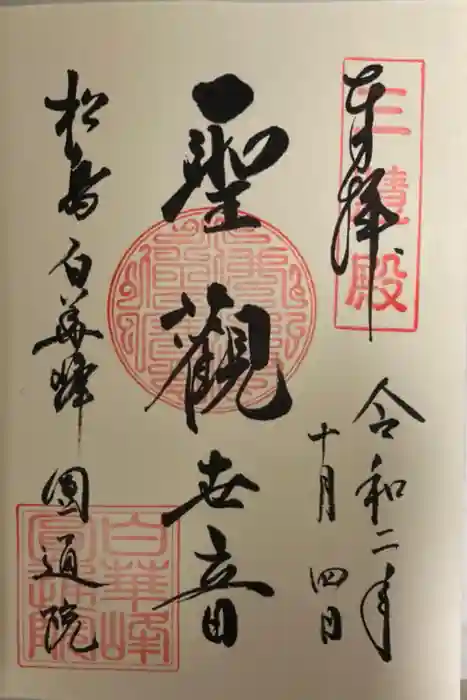 奉拝
三慧殿
令和二年
十月四日
聖観世音
松島白華峰圓道院
白華峰
圓通院